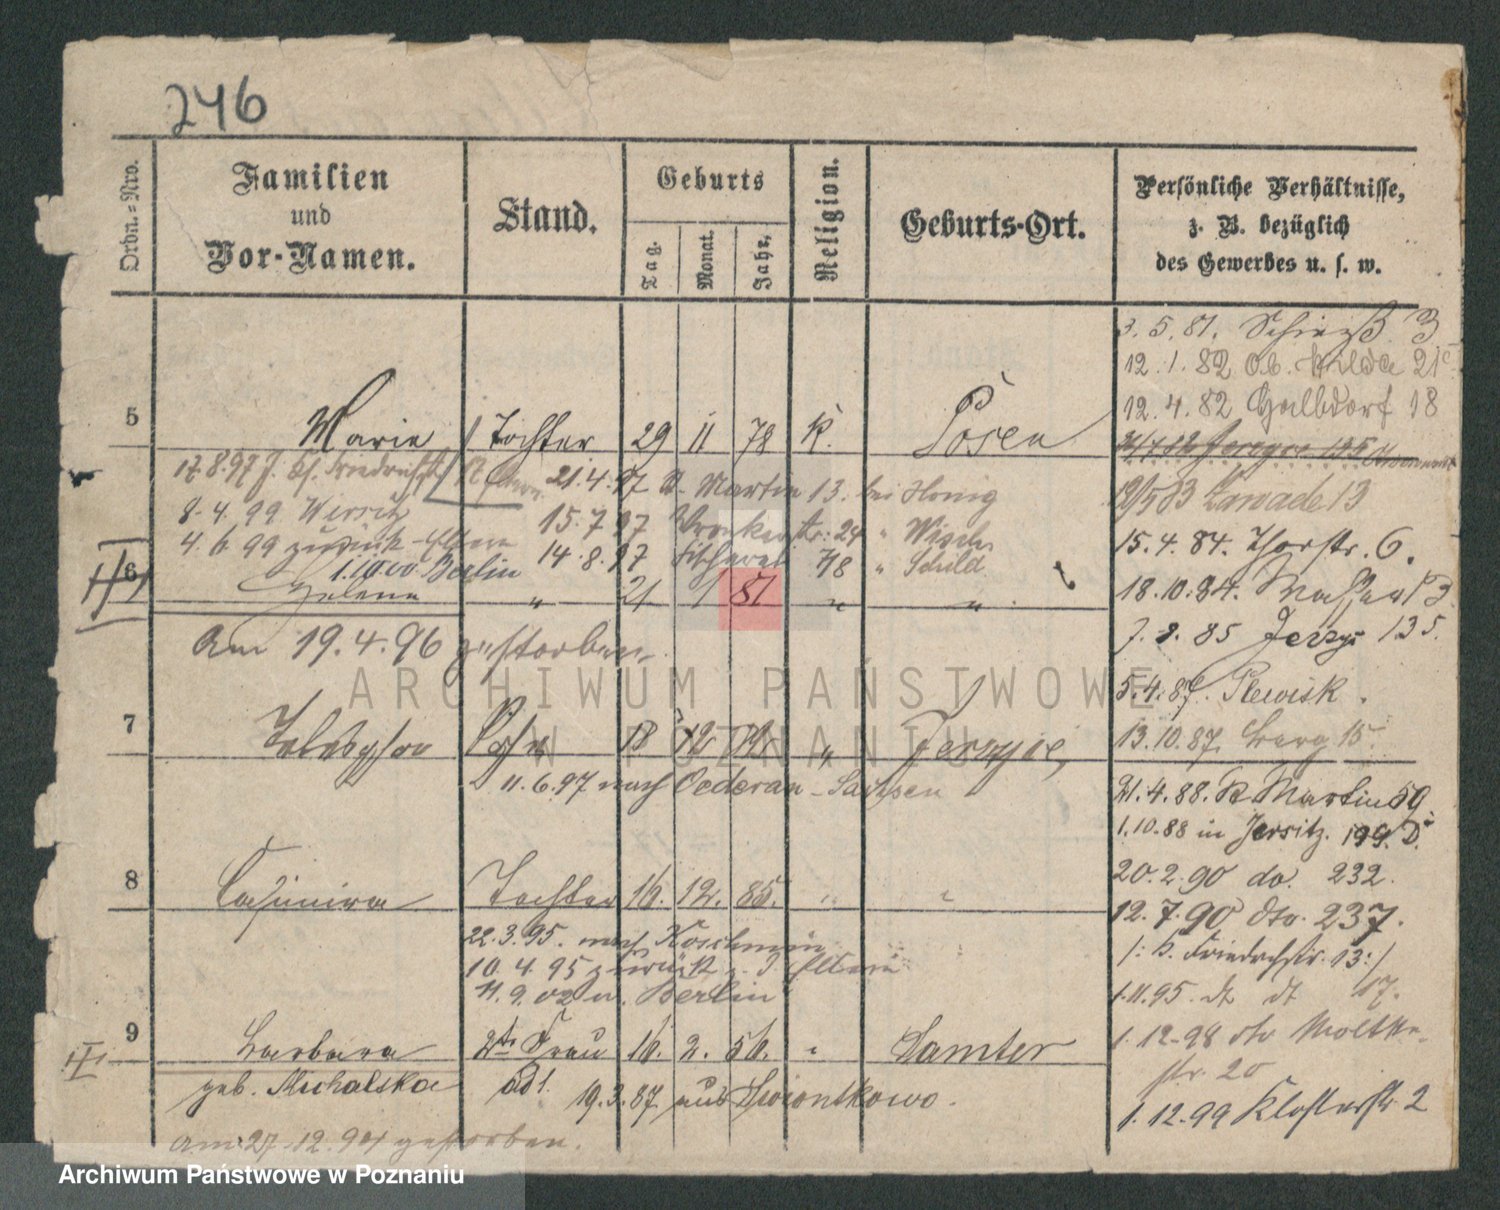 246
Ordn.-Nro.
Familien
und
Vor-Namen.
Stand.
Geburts
Tag.
Monat.
Jahr.
Religion.
Geburts-Ort.
Persönliche Verhältnisse,
z. B. bezüglich
des Gewerbes u. s. w.
3.5.81. Schieß 3
12.1.82 Ob. Wilda 21
12.4.82 Halbdorf 18
5 Marie Tochter 29 11 78 K. Posen
12/5 83 Zawade 13
17.8.97 21.4.97 St. Martin 13. bei Honig
8.4.99 Wersitz 15.7.97 24 "
4.6.99 zurück Eltern 14.8.97 Fischerei 7/8 " Schild
1.10.00 Berlin
15.4.84. Thorstr. 6.
6 Helene " 21 1 81 " "
18.10.84. Wasser 13
Am 19.4.96 gestorben
7.8.85 Jerzyc 135.
5.4.87. Plewisk.
7 Telesphor Sohn 18 12 82 " Jerzyce,
13.10.87. Berg 15.
11.6.97 nach Oederan - Sachsen
21.4.88. St Martin 59.
1.10.88 in Jersitz. 199 D.
8 Casimira Tochter 16. 12. 85. " "
20.2.90 do. 232.
12.7.90 dto. 237.
22.3.95. nach Koschmin
/: K. Friedrichstr. 13:/
10.4.95 zurück z. d. Eltern
11.9.02 n. Berlin
1.11.95. dt dt 17.
9 Barbara 2te Frau 16. 2. 56. " Samter
1.12.98 dto Moltke-
str. 20
geb. Michalska
19.3.87 aus Swiontkowo.
1.12.99 Klosterstr 2
am 27.12.94 gestorben.
ARCHIWUM PAŃSTWOWE
W POZNANIU
Archiwum Państwowe w Poznaniu